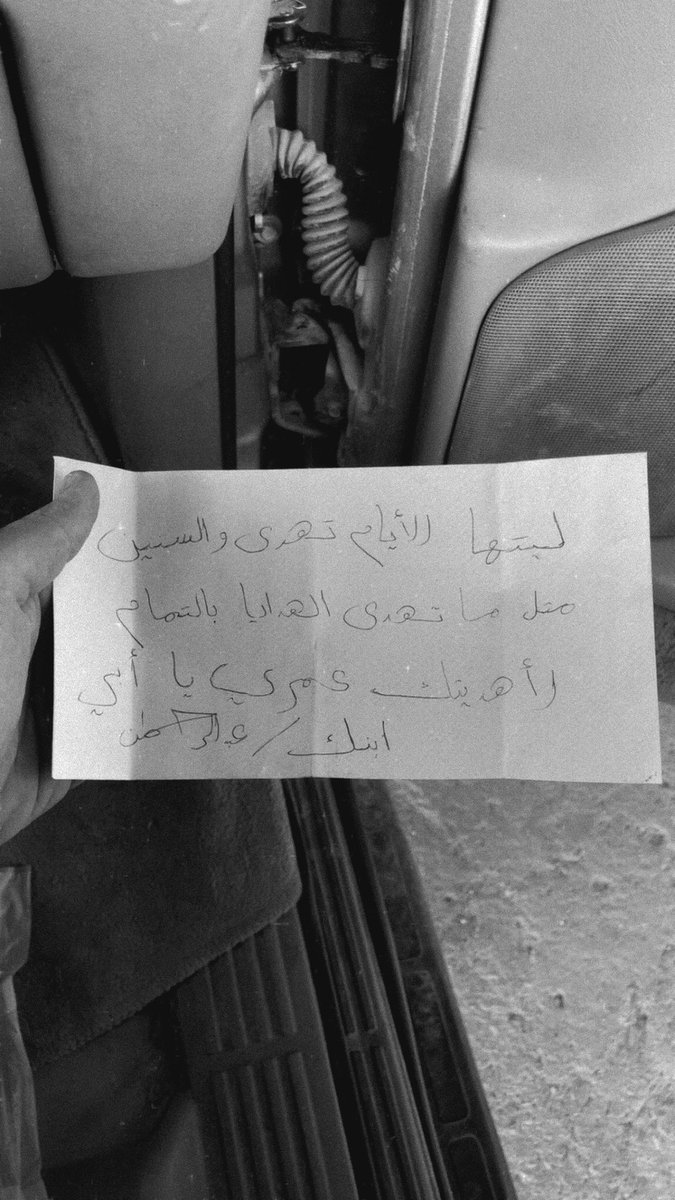 ليتها الأيام تهدى والسنين
مثل ما تهدى الهدايا بالتمام
لأهديتك عمري يا أبي
ابنك / عبدالرحمن